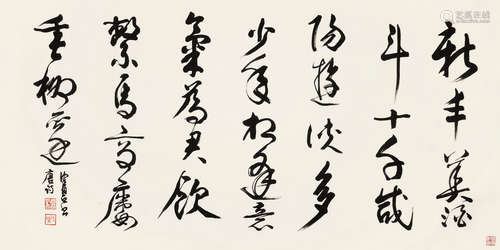 新丰美酒
斗十千咸
陽遊俠多
少年相逢意
氣為君飲
繫馬高樓
垂柳邊
唐詩